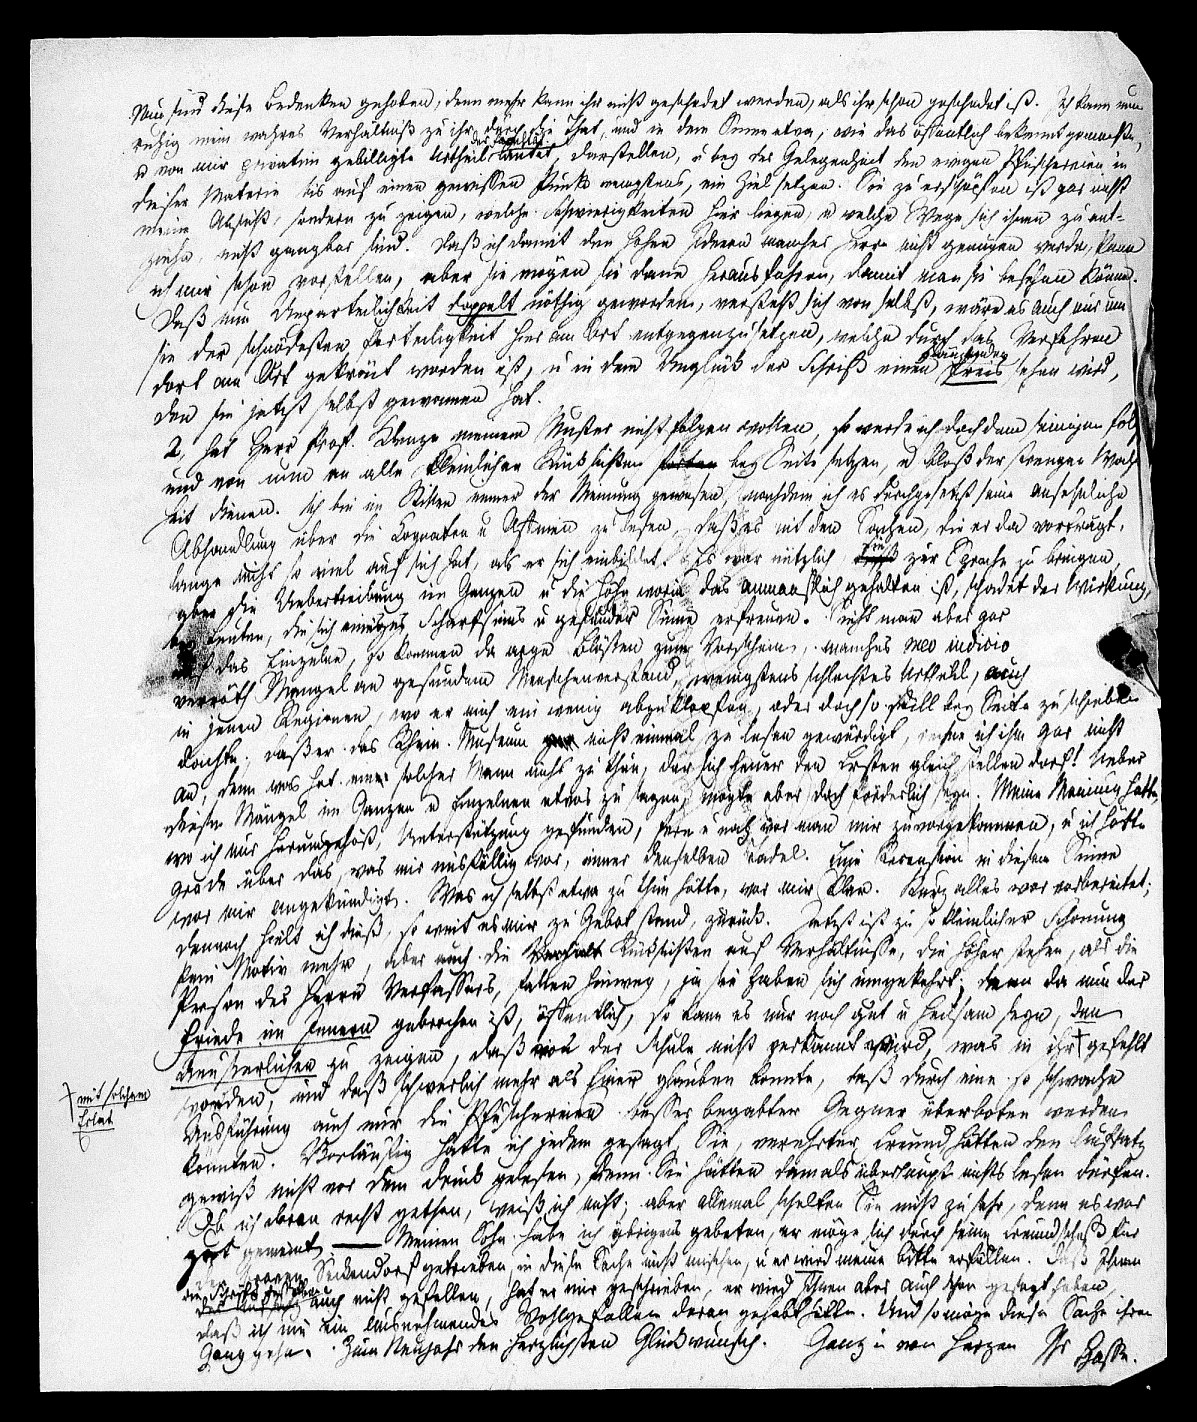 Nun sind diese Bedenken gehoben, denn mehr kann ihr nicht geschadet werden, als ihr schon geschadet ist. Ich kann nun
ruhig mein wahres Verhältniß zu ihr durch die That, und in dem Sinne etwa, wie das öffentlich bekannt gemachte,
u von mir privatim gebilligte Urtheil der Facultät lautet, darstellen, u bey der Gelegenheit den ewigen Pfuschereien in
dieser Materie bis auf einen gewissen Punkt wenigstens, ein Ziel setzen. Sie zu erschöpfen ist gar nicht
meine Absicht, sondern zu zeigen, welche Schwierigkeiten hier liegen, u welche Wege sich ihnen zu ent-
ziehn, nicht gangbar sind. Daß ich damit den hohen Ideen mancher Herrn nicht genügen werde, kann
ich mir schon vorstellen, aber sie mögen sie dann herausfahren, damit man sie besehen könne.
Daß nun Unparteilichkeit doppelt nöthig geworden, versteht sich von selbst, wäre es auch nur um
sie der schnödesten Parteiligkeit hier am Ort entgegenzusetzen, welche durch das Verfahren
dort am Ort gekrönt worden ist, u in dem Unglück der Schrift einen Preis sehen wird,
den sie jetzt selbst gewonnen hat.
2, hat Herr Prof. Klenze meinem Muster nicht folgen wollen, so werde ich doch dem seinigen fol
und von nun an alle kleinlichen Rücksichten bey Seite setzen, u bloß der strengen Wahr
heit dienen. Ich bin im Stillen immer der Meinung gewesen, nachdem ich es durchgesetzt seine ansehnliche
Abhandlung über die Cognaten u Affinen zu lesen, daß es mit den Sachen, die er da vorträgt,
lange nichts so viel auf sich hat, als er sich einbildet. Es war nützlich sie zur Sprache zu bringen,
aber die Uebertreibung im Ganzen u die Höhe worin das anmaaßlich gehalten ist, schadet der Wirkung,
bey Leuten, die sich einiges Scharfsinns u gesunder Sinne erfreuen. Sieht man aber gar
auf das Einzelne, so kommen da arge Blößen zum Vorschein, manches meo iudicio
verräth Mangel an gesundem Menschenverstand, wenigstens schlechtes Urtheil, auch
in jenen Regionen, wo er mich ein wenig abzuklopfen, oder doch so still bey Seite zu schieben
dachte; daß er das Rhein. Museum nicht einmal zu lesen gewürdigt, rechne ich ihm gar nicht
an, denn was hat ein solcher Mann nichts zu thun, der sich heuer den Ersten gleich stellen darf! Ueber
diese Mängel im Ganzen u Einzelnen etwas zu sagen, mögte aber doch förderlich seyn. Meine Meinung hatte,
wo ich nur herumgehört, Unterstützung gefunden, fern u nah war man mir zuvorgekommen, u ich hörte
grade über das, was mir misfällig war, immer denselben Tadel. Eine Recension in diesem Sinne
war mir angekündigt. Was ich selbst etwa zu thun hätte, war mir klar. Kurz alles war vorbereitet;
dennoch hielt ich dieß, so weit es mir zu Gebot stand, zurück. Jetzt ist zu so kleinlicher Schonung
kein Motiv mehr, aber auch die Rücksichten auf Verhältnisse, die höher stehen, als die
Person des Herrn Verfassers, fallen hinweg, ja sie haben sich umgekehrt; denn da nun der
Friede im Innern gebrochen ist, öffentlich, so kann es nur noch gut u heilsam seyn, den
Aeusserlichen zu zeigen, daß von der Schule nicht verkannt wird, was in ihr gefehlt
worden, und daß schwerlich mehr als hier glauben konnte, daß durch eine so schwache
mit solchem
Eclat
Ausführung auch nur die Pfuschereien besser begabter Gegner überboten werden
könnten. Vorläufig hatte ich jedem gesagt, Sie, verehrter Freund, hätten den Aufsatz
gewiß nicht vor dem Druck gelesen, denn Sie hätten damals überhaupt nichts lesen dürfen.
Ob ich daran recht gethan, weiß ich nicht; aber allemal schelten Sie nicht zu sehr, denn es war
gut gemeint. — Meinen Sohn habe ich übrigens gebeten, er möge sich durch seine Freundschaft für
Seckendorf getrieben, in diese Sache nicht mischen, u er wird meine Bitte erfüllen. Daß Ihnen
auch nicht gefallen, hat er mir geschrieben, er wird Ihnen aber auch schon gesagt haben,
daß ich nie ein ausnehmendes Wohlgefallen daran gehabt hätte. Und so möge diese Sache ihren
Gang gehn. Zum Neujahr den herzlichsten Glückwunsch. Ganz u von Herzen Ihr
Hasse.